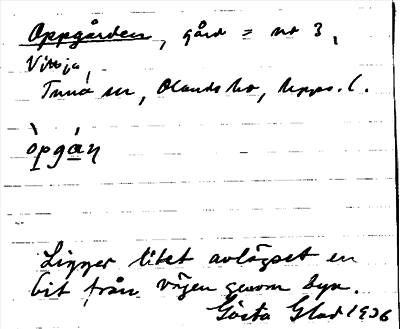 Oppgården, gård = no 3,
Vissja
Tuna sn, Olands hd, Upps. l.
òpgán
Ligger litet avlägset en
bit från vägen genom byn.
Gösta Glad 1936